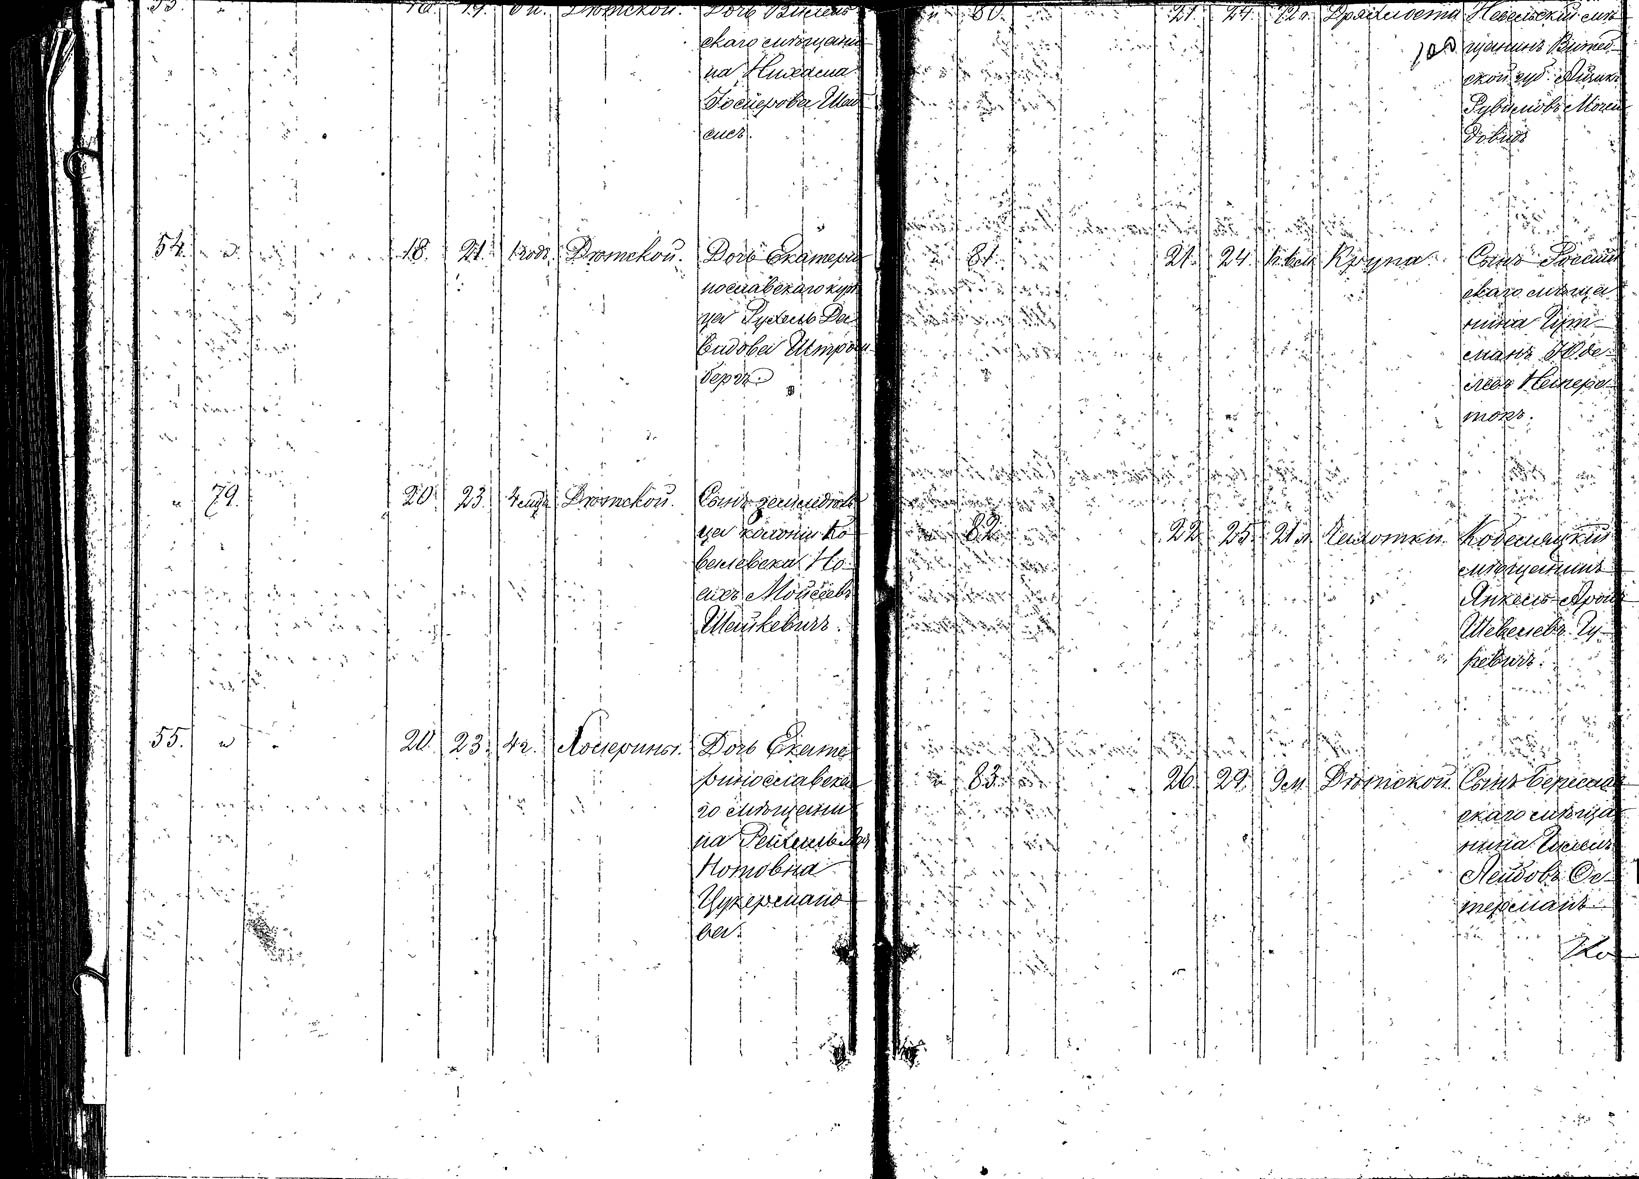 53. 16. 19. 6 м. Дѣтской. Дочь Вилен-
скаго мѣщани-
на Нихама
Іосиерова Шей-
сисъ.
54. " 18. 21. 1 годъ. Дѣтской. Дочь Екатери-
нославскаго куп-
ца Рухель Да-
видова Штром-
бергъ.
" 79. 20. 23. Дѣтской. Сынъ земледѣль-
ца колоніи Ко-
велевска Но-
ахъ Мойсеевъ
Шейкевичъ.
55. " 20. 23. 4 г. Холерины. Дочь Екате-
ринославска-
го мѣщани-
на Рейхель
Нотовна
Цукермано-
ва.
" 80. 21. 24. 72 г. Дряхлости Невельскій мѣ-
щанинъ Витеб-
ской губ. Айзикъ
Рувимовъ
довидъ
81. 21. 24. Крупа. Сынъ Россій-
скаго мѣща-
нина
манъ
" 82. 22. 25. 21 л. Чахотки. Кобеляцкій
мѣщанинъ
Янкель-Аронъ
Шевелевъ Гу-
ревичъ.
" 83. 26. 29. 9 м. Дѣтской. Сынъ Берислав-
скаго мѣща-
нина
Лейбовъ Ос-
терманъ.